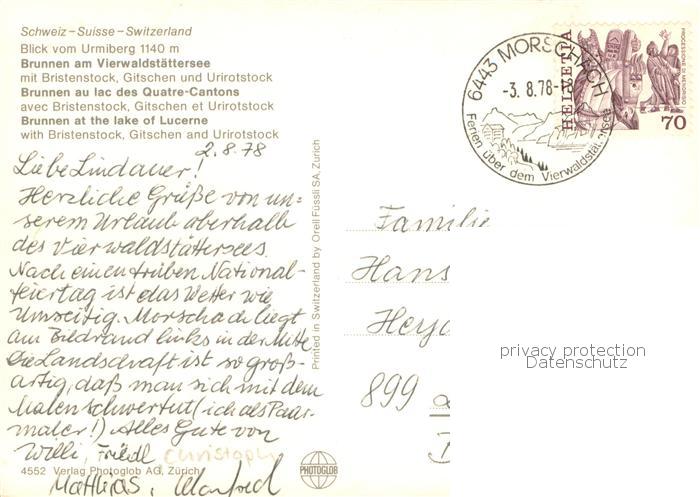 Schweiz – Suisse – Switzerland
Blick vom Urmiberg 1140 m
Brunnen am Vierwaldstättersee
mit Bristenstock, Gitschen und Urirotstock
Brunnen au lac des Quatre-Cantons
avec Bristenstock, Gitschen et Urirotstock
Brunnen at the lake of Lucerne
with Bristenstock, Gitschen and Urirotstock
2.8.78
Liebe Lindauer!
Herzliche Grüße von un=
serem Urlaub oberhalb
des Vierwaldstättersees.
Nach einem trüben National-
feiertag ist das Wetter wie
Umseitig. Morschach liegt
am Bildrand links in der Mitte
Die Landschaft ist so groß-
artig, daß man sich mit dem
Malen schwertut (ich als Paar-
maler!) Alles Gute von
Willi, Friedl Christoph
Matthias, Manfred
4552 Verlag Photoglob AG, Zürich
Printed in Switzerland by Orell Füssli SA, Zürich
PHOTOGLOB
6443 MORSCHACH
-3.8.78-18
Ferien über dem Vierwaldstättersee
HELVETIA
PROCESSIONE DI MENDRISIO
70
Familie
Hans
899
privacy protection
Datenschutz